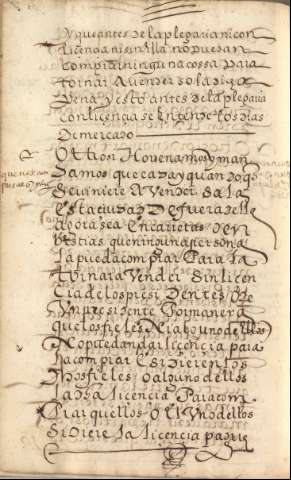 y que antes de la plegaria ni con
licencia ni sin ella no puedan
comprar ninguna cossa para
tornar a vender so la dicha
pena y esto antes de la plegaria
con licencia se entiende los dias
de mercado
Otrosi hordenamos y man
damos que cada y quando q
se viniere a vender sal a
esta ciudad de fuera della
agora sea en carretas o en
bestias que ninguna persona
la pueda comprar para la
tornar a vender sin licen
cia de los presidentes o de
un presidente por manera
que los fieles ni alguno dellos
no puedan dar licencia para
la comprar e si dieren los
dhos fieles o alguno dellos
la dha licencia para com
prar que llos o el uno dellos
si diere la licencia pague